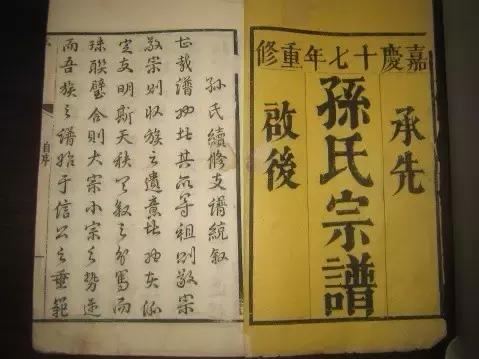 嘉慶十七年重修
承先
孫氏宗譜
啟後
孫氏續修支譜統叙
哉譜此其尊祖則敬宗
敬宗則收族之遺意
定支明斯天秩叙之篤而
珠聯璧合則大宗小宗之勢
而吾族之譜始于信公之垂範
自序